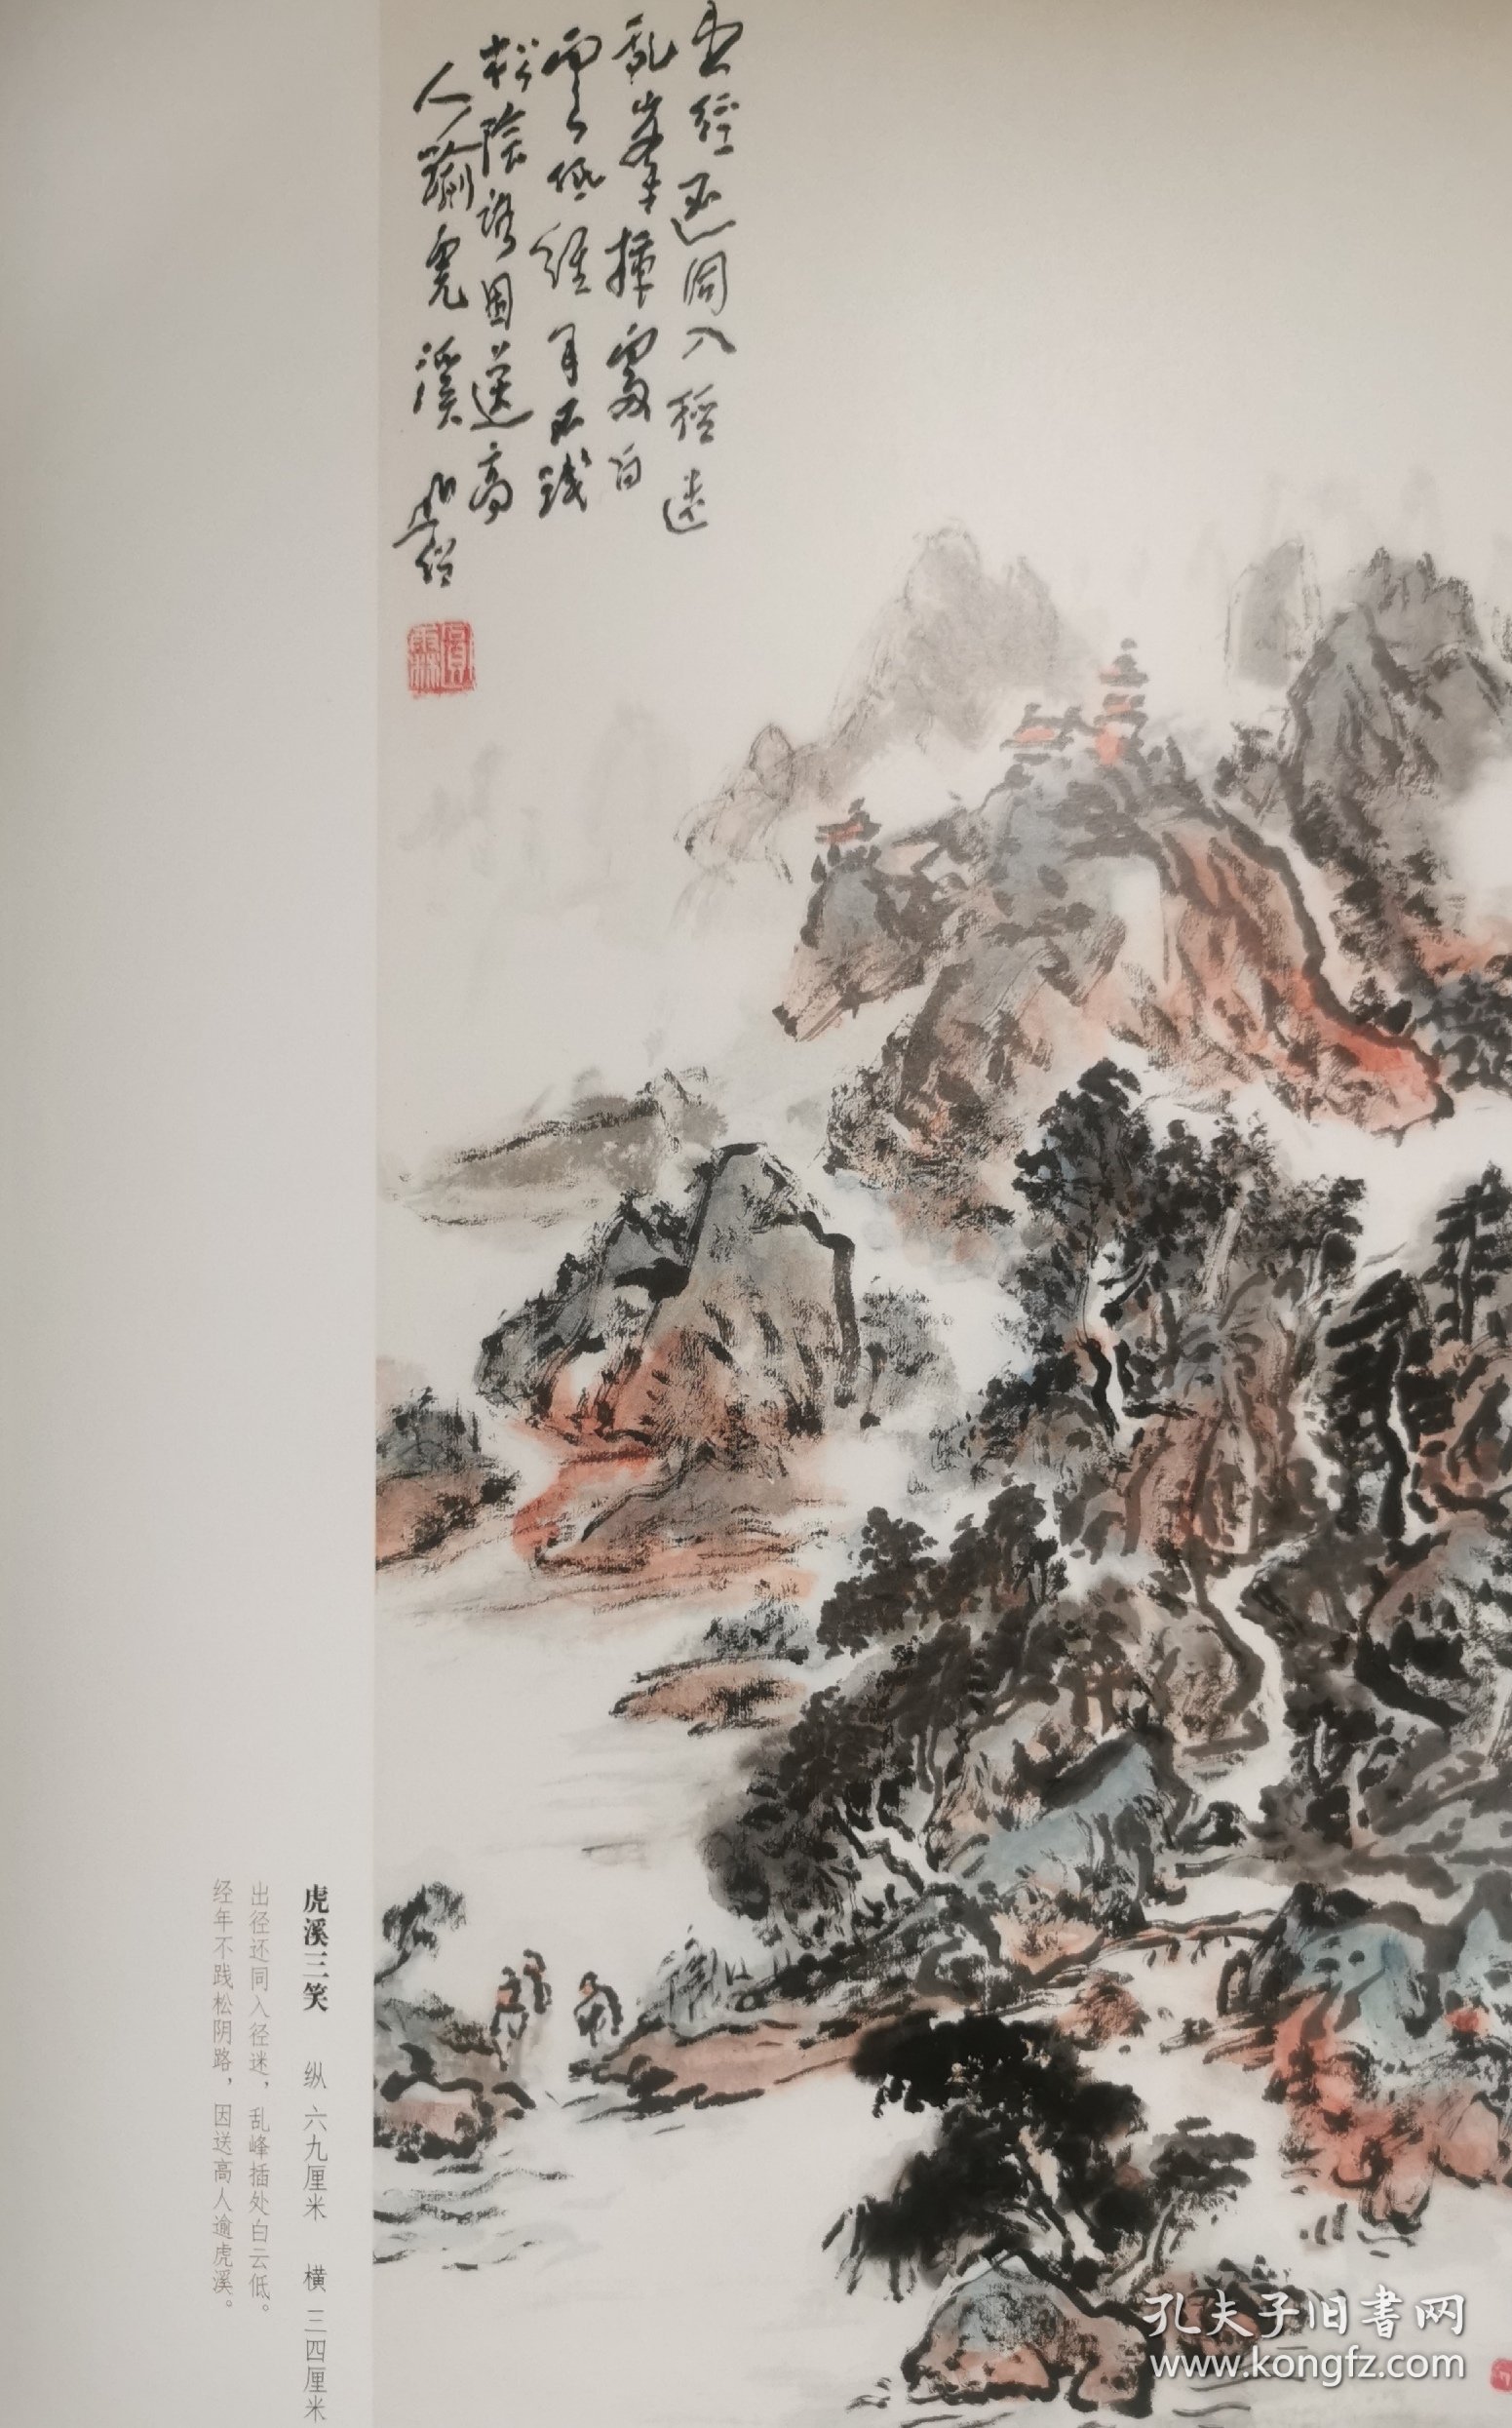 出径还同入径迷
乱峯插处白
云低经年不践
松陰路因送高
人踰虎溪
虎溪三笑 纵 六九厘米 横 三四厘米
出径还同入径迷，乱峰插处白云低。
经年不践松阴路，因送高人逾虎溪。
孔夫子旧書网
www.kongfz.com